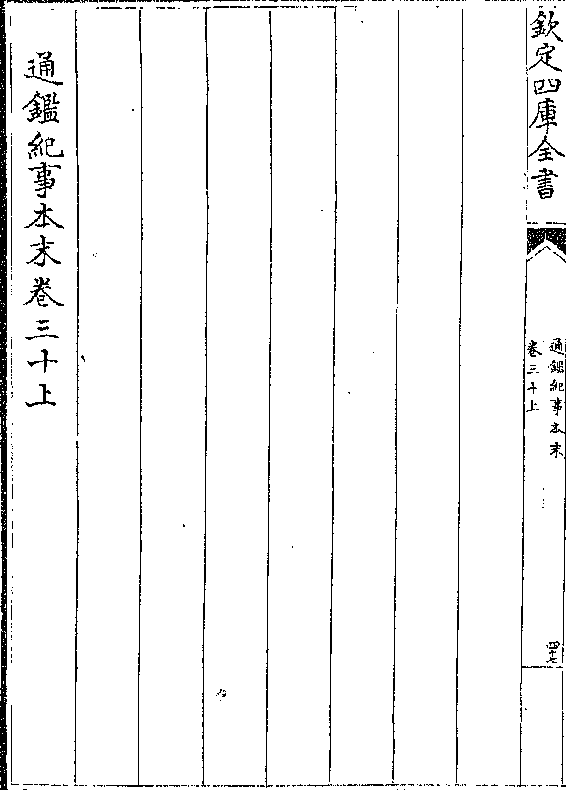 欽定四庫全書
通鑑紀事本末
卷三十上
四十七
通鑑紀事本末卷三十上